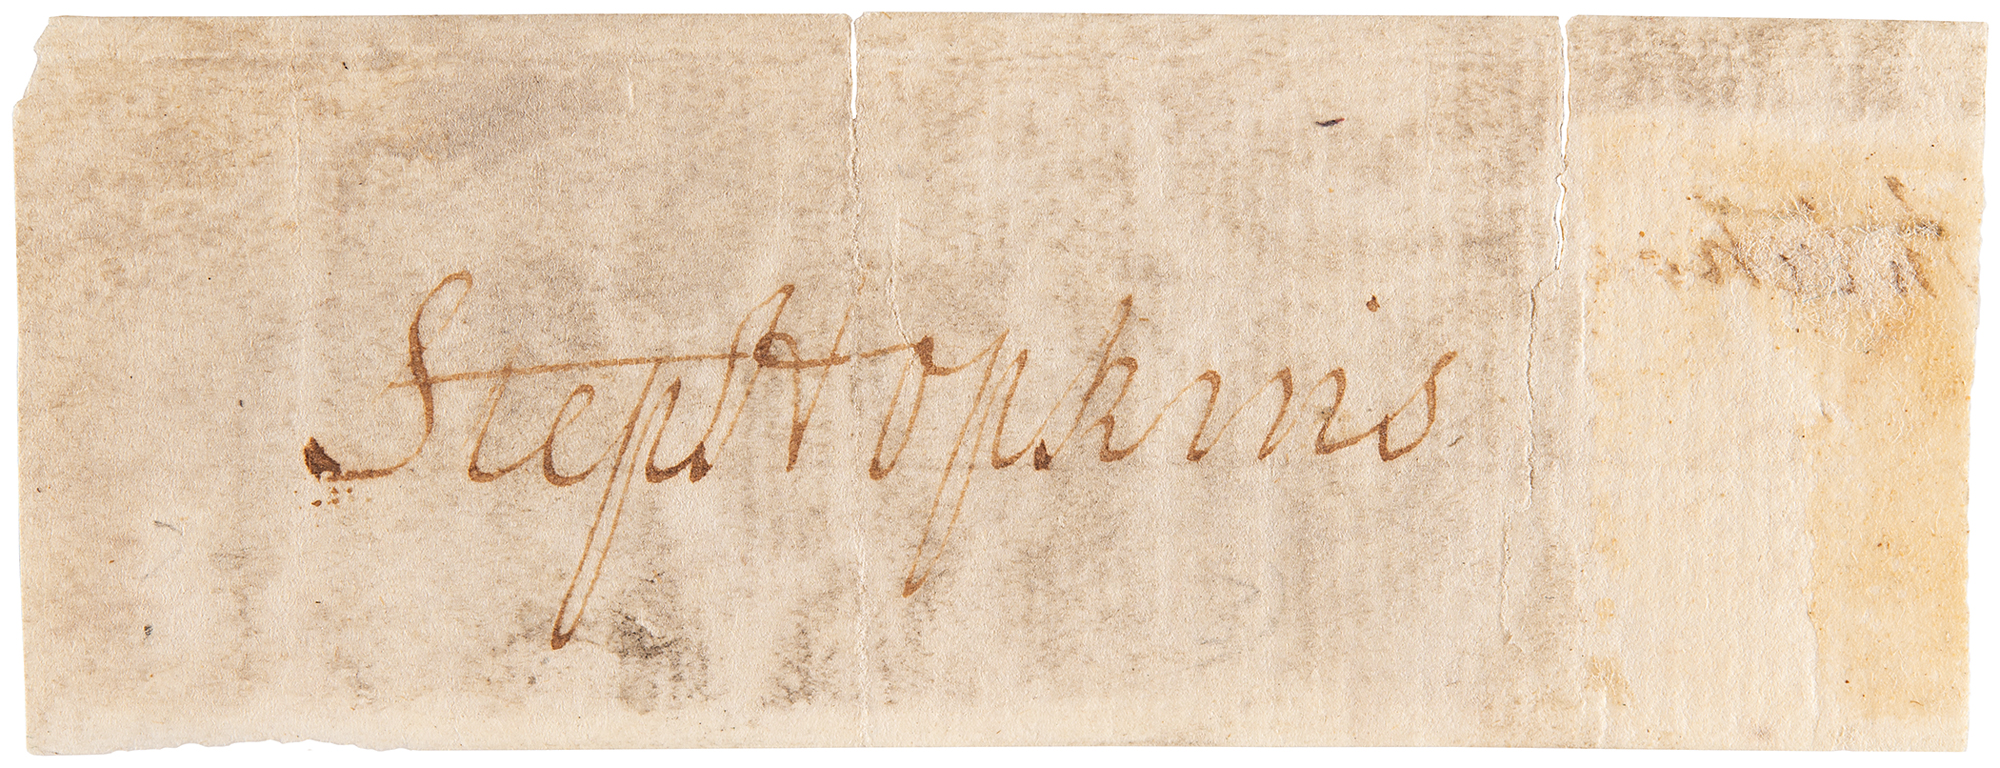 Step Hopkins